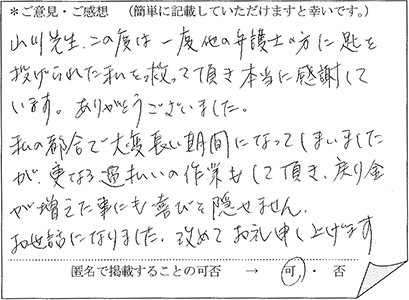 ＊ご意見・ご感想 （簡単に記載していただけますと幸いです。）
山川先生、この度は一度他の弁護士の方に匙を
投げられた私を救って頂き本当に感謝して
います。ありがとうございました。
私の都合で大変長い期間になってしまいました
が、更なる過払いの作業もして頂き、戻り金
が増えた事にも喜びを隠せません。
お世話になりました。改めてお礼申し上げます
匿名で掲載することの可否 → 可・否